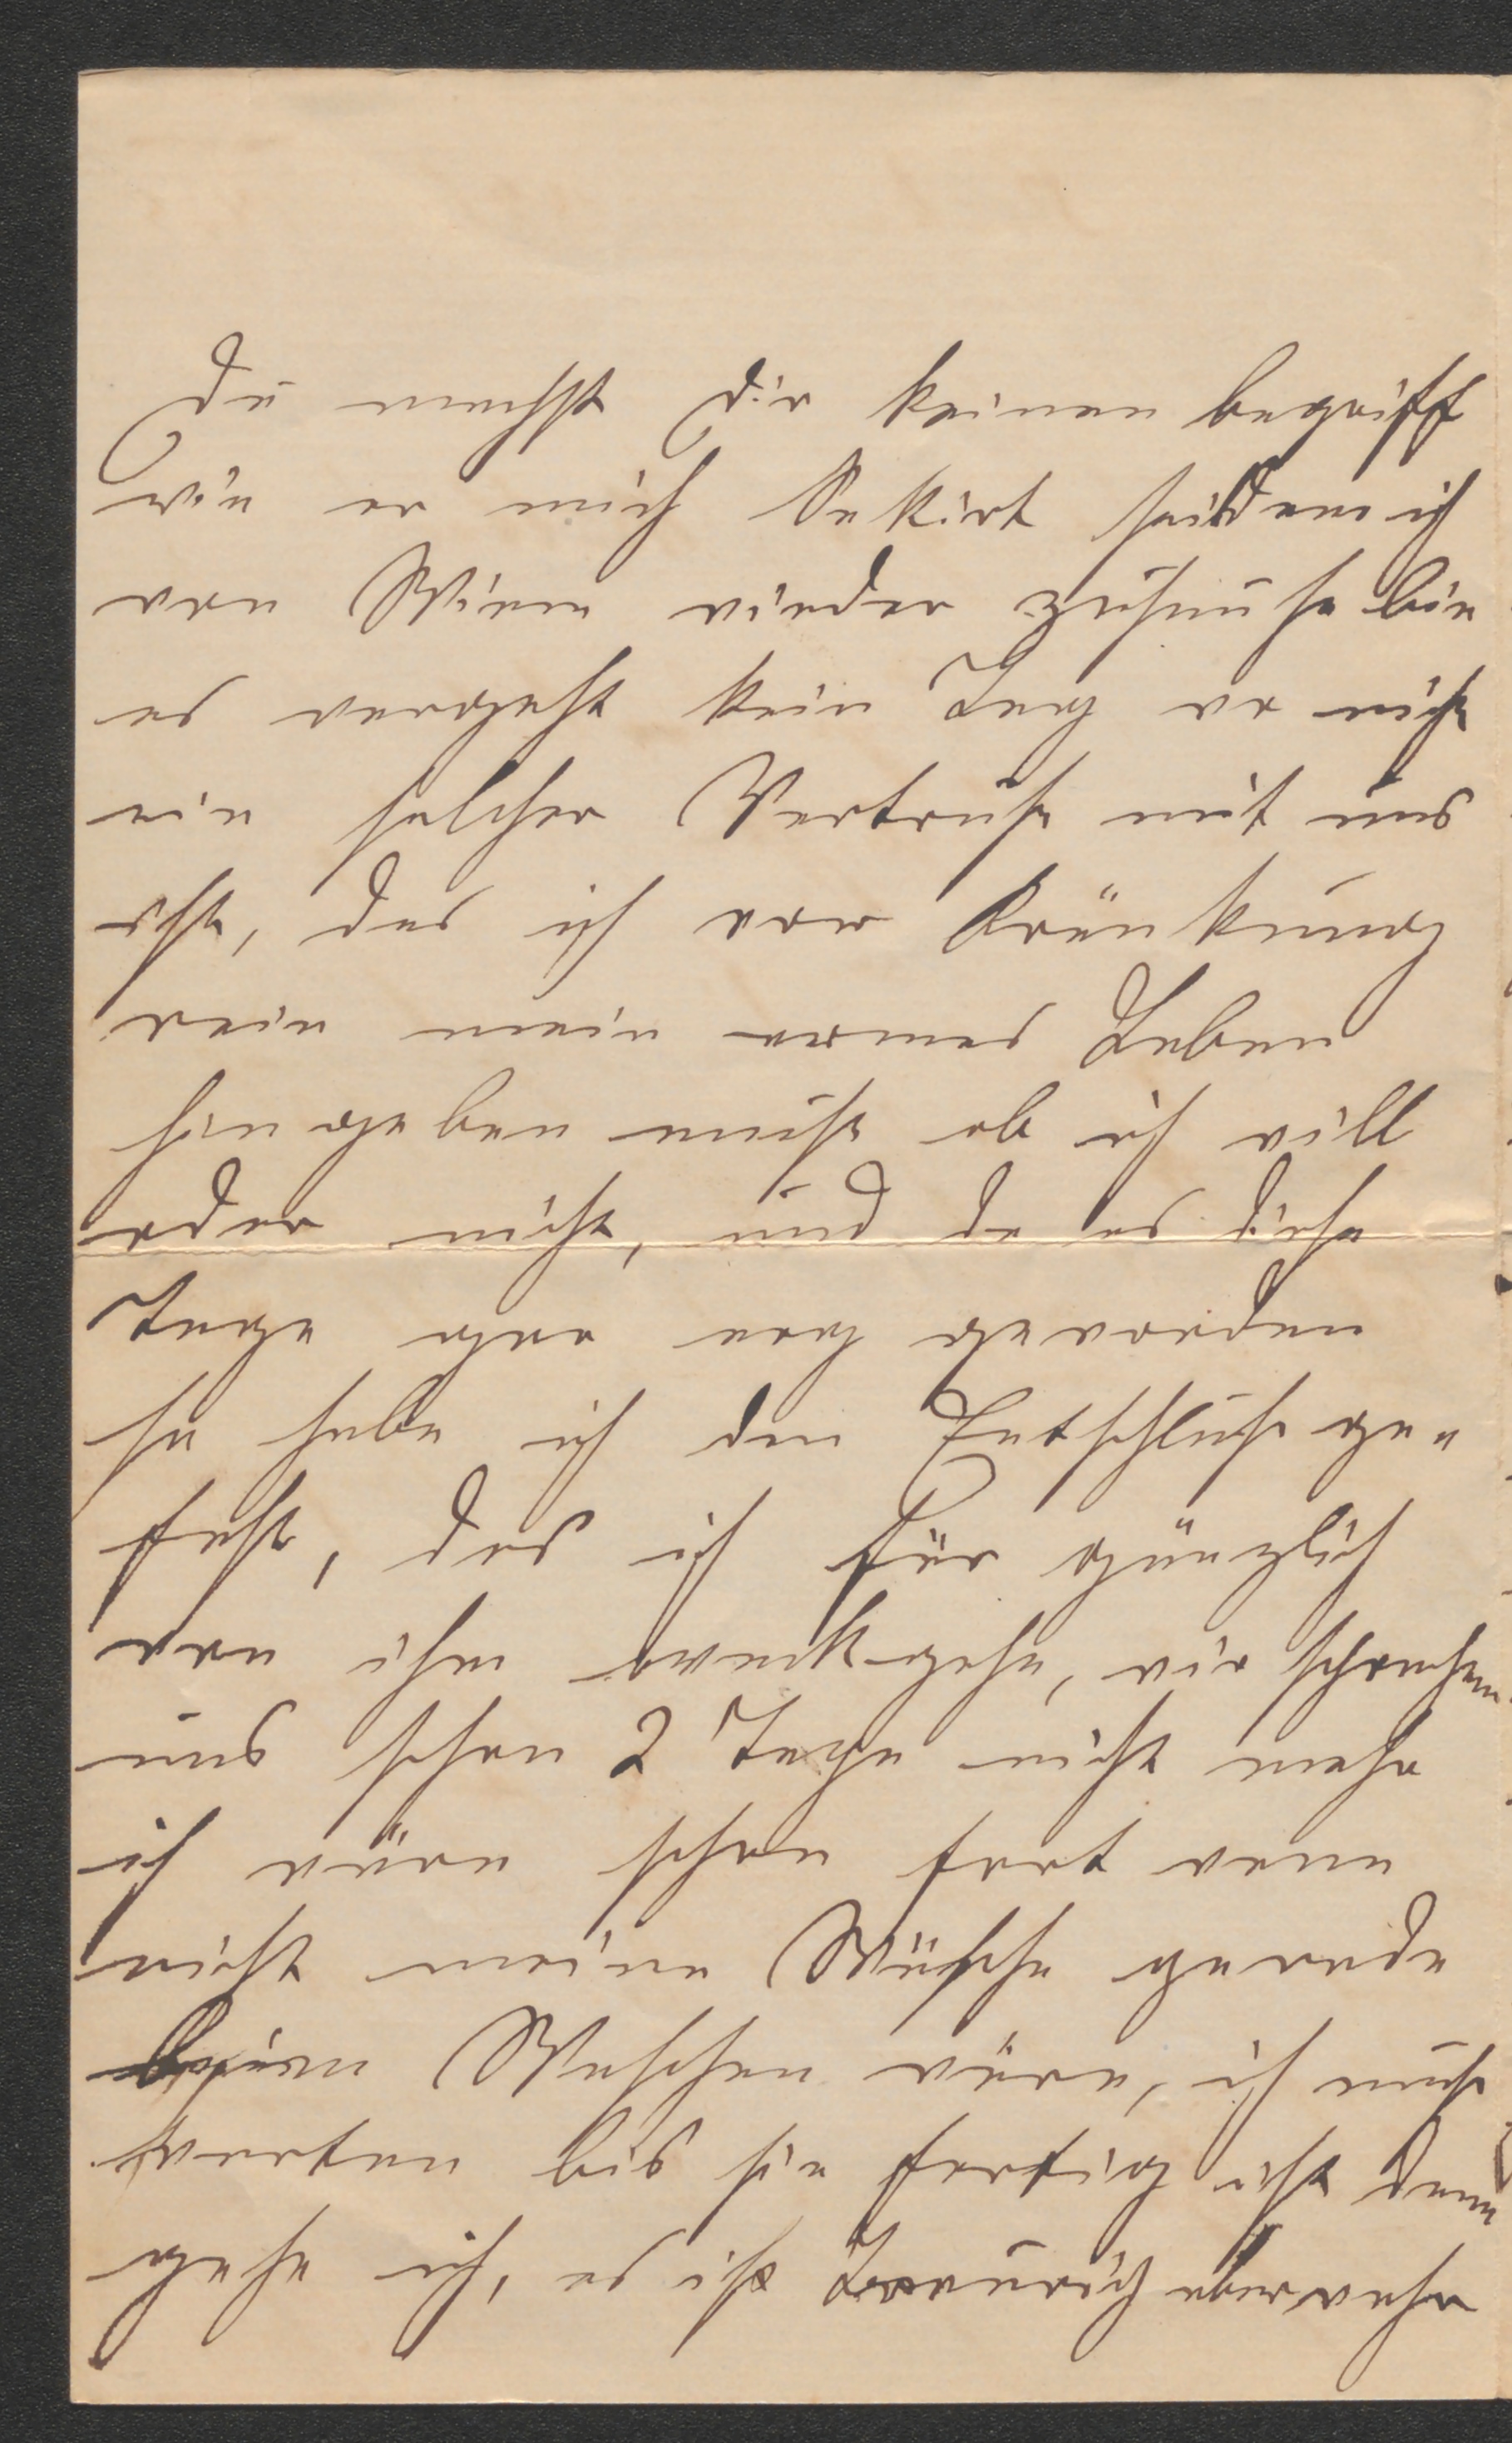 Du machst Dir keinen begriff
wie er mich Sekirt seidem ich
von Wien wieder zuhause bin
es vergeht kein Tag wo nicht
ein solcher Vertruß mit uns
ist, das ich vor Kränkung
rein mein armes Leben
hingeben muß ob ich will
oder nicht, und da es diese
Tage gar arg geworden
so habe ich den Entschluß ge„
faßt, das ich für gänzlich
von ihm weckgehe, wir sprechen
uns schon 2 Tage nicht mehr
ich wäre schon fort wenn
nicht meine Wäsche gerade
beim Waschen wäre, ich muß
warten bis sie fertig ist dann
gehe ich, es ist Traurig aber wahr